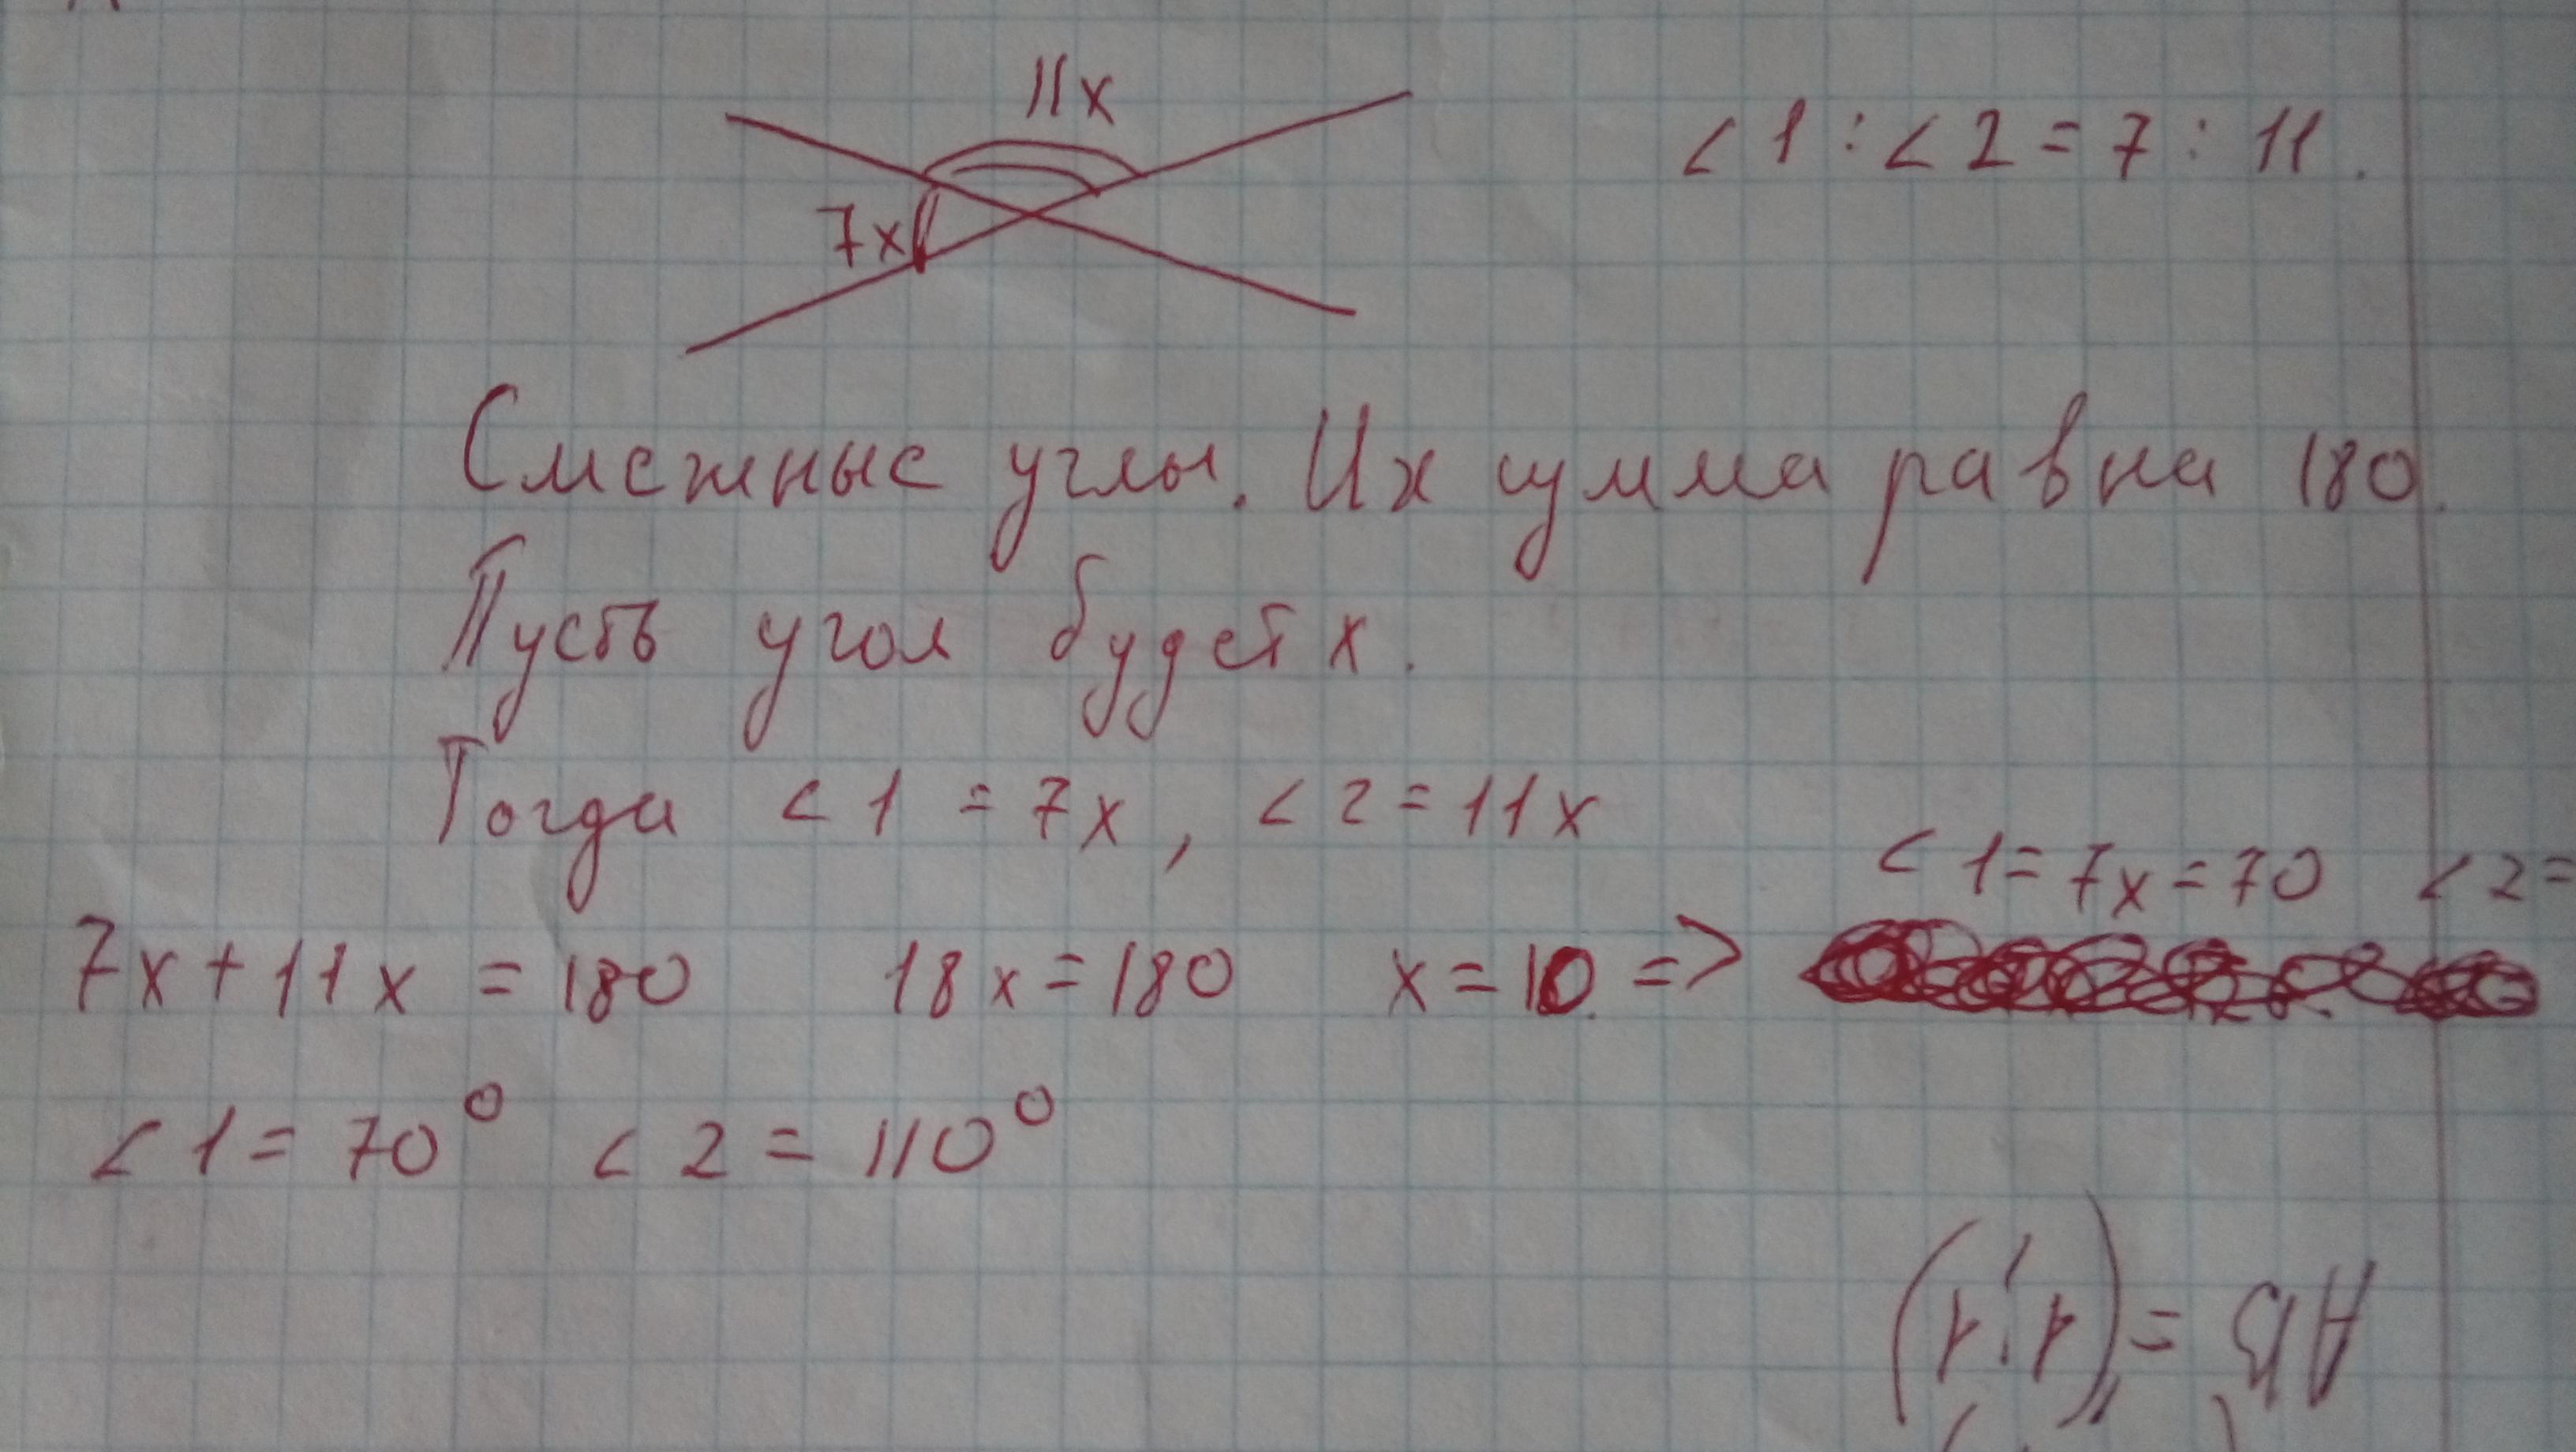 11x
∠1 : ∠2 = 7 : 11.
7x
Смежные углы. Их сумма равна 180.
Пусть угол будет x.
Тогда ∠1 = 7x, ∠2 = 11x
∠1 = 7x = 70 ∠2 =
7x + 11x = 180 18x = 180 x = 10. =>
∠1 = 70° ∠2 = 110°
AB =